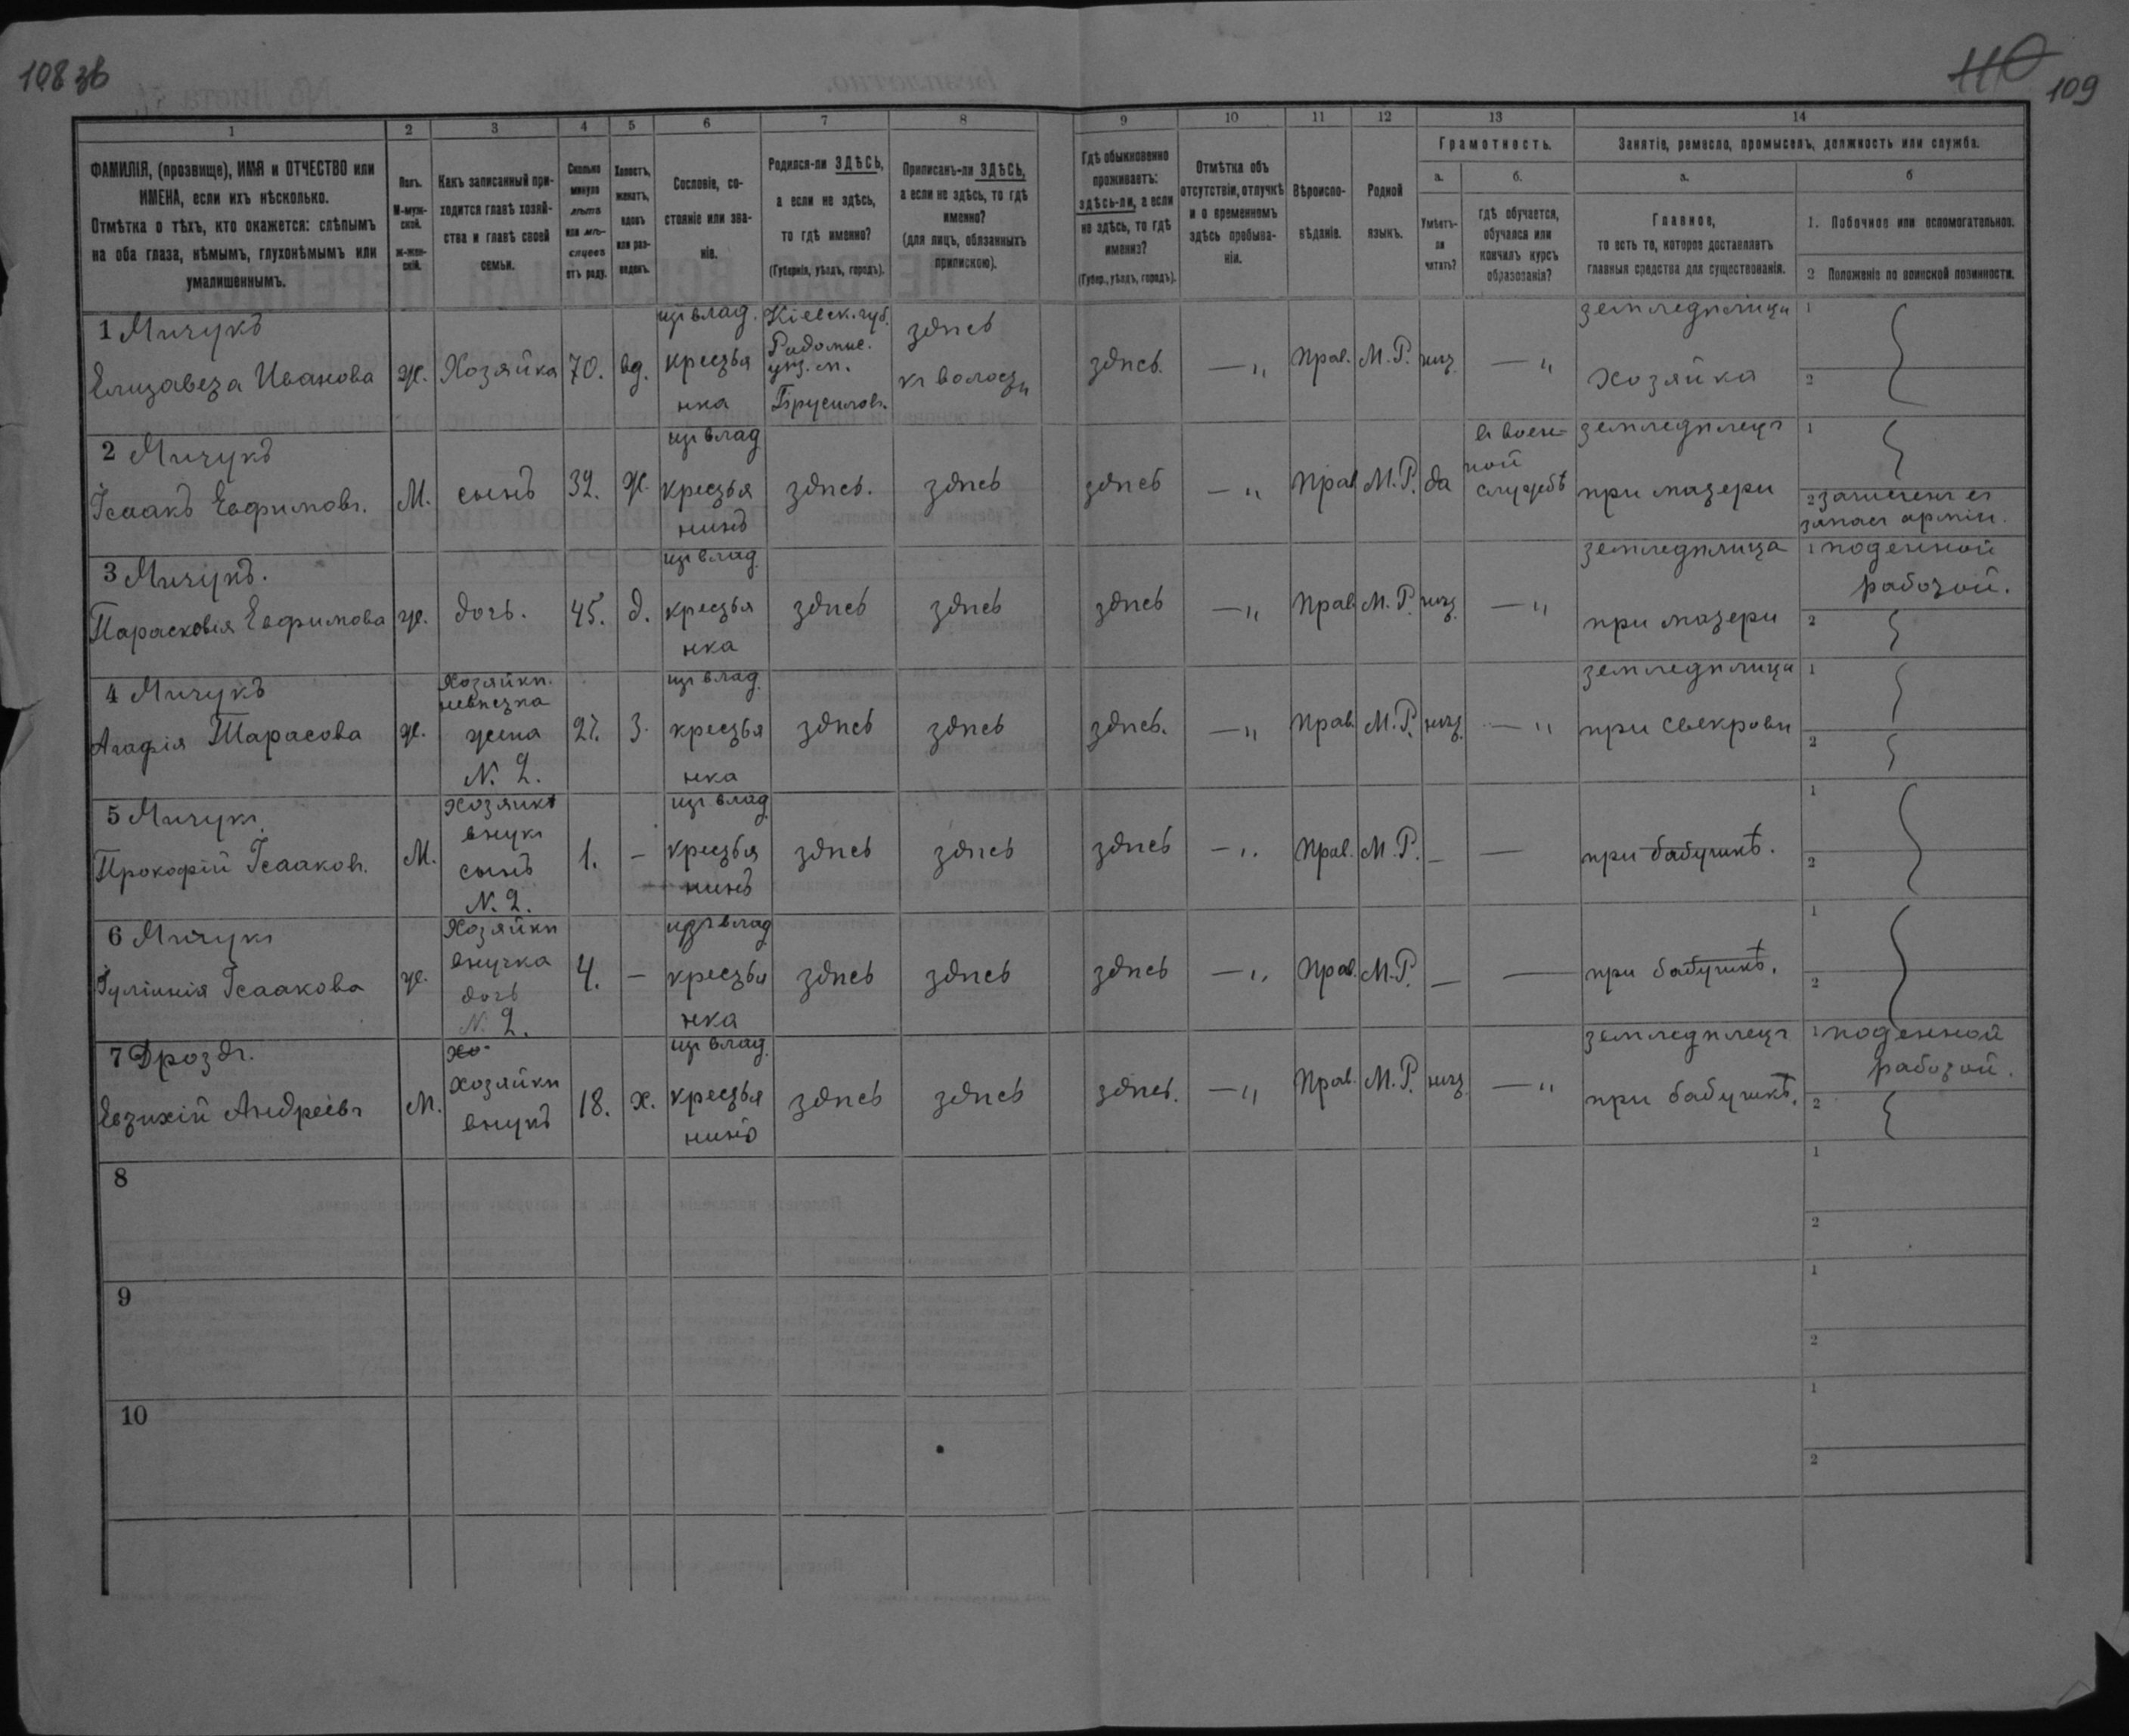 108 зв
110
109
1
2
3
4
5
6
7
8
9
10
11
12
13
14
ФАМИЛІЯ, (прозвище), ИМЯ и ОТЧЕСТВО или
ИМЕНА, если ихъ нѣсколько.
Отмѣтка о тѣхъ, кто окажется: слѣпымъ
на оба глаза, нѣмымъ, глухонѣмымъ или
умалишеннымъ.
Полъ.
М-муж-
ской.
ж-жен-
скій.
Какъ записанный при-
ходится главѣ хозяй-
ства и главѣ своей
семьи.
Сколько
минуло
лѣтъ
или мѣ-
сяцевъ
отъ роду.
Холостъ,
женатъ,
вдовъ
или раз-
веденъ.
Сословіе, со-
стояніе или зва-
ніе.
Родился-ли ЗДѢСЬ,
а если не здѣсь,
то гдѣ именно?
(Губернія, уѣздъ, городъ).
Приписанъ-ли ЗДѢСЬ,
а если не здѣсь, то гдѣ
именно?
(для лицъ, обязанныхъ
припискою).
Гдѣ обыкновенно
проживаетъ:
здѣсь-ли, а если
не здѣсь, то гдѣ
именно?
(Губер., уѣздъ, городъ).
Отмѣтка объ
отсутствіи, отлучкѣ
и о временномъ
здѣсь пребыва-
ніи.
Вѣроиспо-
вѣданіе.
Родной
языкъ.
Грамотность.
а.
Умѣетъ-
ли
читать?
б.
гдѣ обучается,
обучался или
кончилъ курсъ
образованія?
Занятіе, ремесло, промыселъ, должность или служба.
а.
Главное,
то есть то, которое доставляетъ
главныя средства для существованія.
б
1. Побочное или вспомогательное.
2 Положеніе по воинской повинности.
1 Мичукъ
Елизавета Иванова
ж.
Хозяйка
70.
вд.
изъ влад.
крестья
нка
Кіевск. губ.
Радомис.
уѣз. м.
Брусиловъ.
здѣсь
къ волости
здѣсь.
— "
Прав.
М. Р.
нѣт.
— "
земледѣлица
хозяйка
1
2
2 Мичукъ
Ісаакъ Евфимовъ.
М.
сынъ
32.
Ж.
изъ влад
крестья
нинъ
здѣсь.
здѣсь
здѣсь
— "
Прав
М. Р.
да
въ воен-
ной
службѣ
земледѣлецъ
при матери
1
2 зачисленъ въ
запасъ арміи.
3 Мичукъ.
Парасковія Евфимова
ж.
дочь.
45.
д.
изъ влад.
крестья
нка
здѣсь
здѣсь
здѣсь
— "
Прав.
М. Р.
нѣт.
— "
земледѣлица
при матери
1 поденной
работой.
2
4 Мичукъ
Агафія Тарасова
ж.
Хозяйки.
невѣстка
жена
N. 2.
27.
З.
изъ влад.
крестья
нка
здѣсь
здѣсь
здѣсь.
— "
Прав.
М. Р.
нѣт.
— "
земледѣлица
при свекрови
1
2
5 Мичукъ.
Прокофій Ісааковъ.
М.
внукъ
сынъ
N. 2.
1.
—
изъ влад.
крестья
нинъ
здѣсь
здѣсь
здѣсь
— "
Прав.
М. Р.
—
—
при бабушкѣ.
1
2
6 Мичукъ
Іуліанія Ісаакова
ж.
Хозяйки
внучка
дочь
N. 2.
4.
—
изъ влад
крестья
нка
здѣсь
здѣсь
здѣсь
— "
Прав.
М. Р.
—
—
при бабушкѣ.
1
2
7 Дроздъ.
Евтихій Андреевъ
М.
хо-
хозяйки
внукъ
18.
х.
изъ влад.
крестья
нинъ
здѣсь
здѣсь
здѣсь.
— "
Прав.
М. Р.
нѣт.
— "
земледѣлецъ
при бабушкѣ.
1 поденной
работой.
2
8
1
2
9
1
2
10
1
2